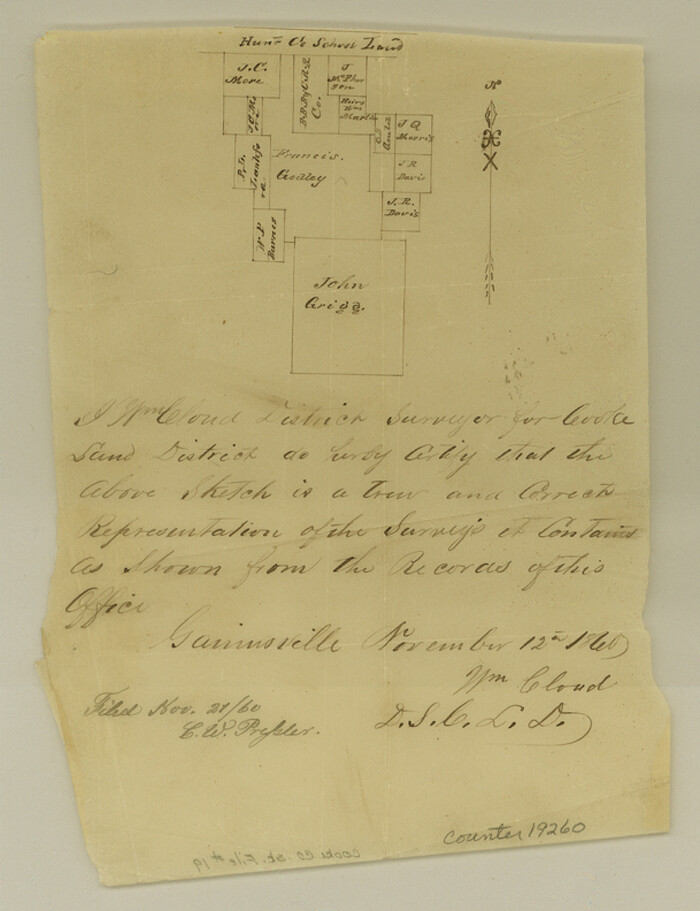 Hunt Co School Land
J.C.
More
J.C. Mo
re
B.B.B. & C. R.R.
Co.
J
McPher
son
Heirs
Wm
Martin
J Q
Morris
J R
Davis
J. R.
Davis
Francis.
Godley
W P
Barnes
John
Grigg.
N
I Wm Cloud District Surveyor for Cooke
Land District do hereby Certify that the
above Sketch is a true and Correct
Representation of the Surveys it Contains
as Shown from the Records of this
Office
Gainesville November 12th 1860
Wm Cloud
D. S. C. L. D.
Filed Nov. 28/60
C. W. Pressler.
counter 19260
Cooke Co. Sk. File #19